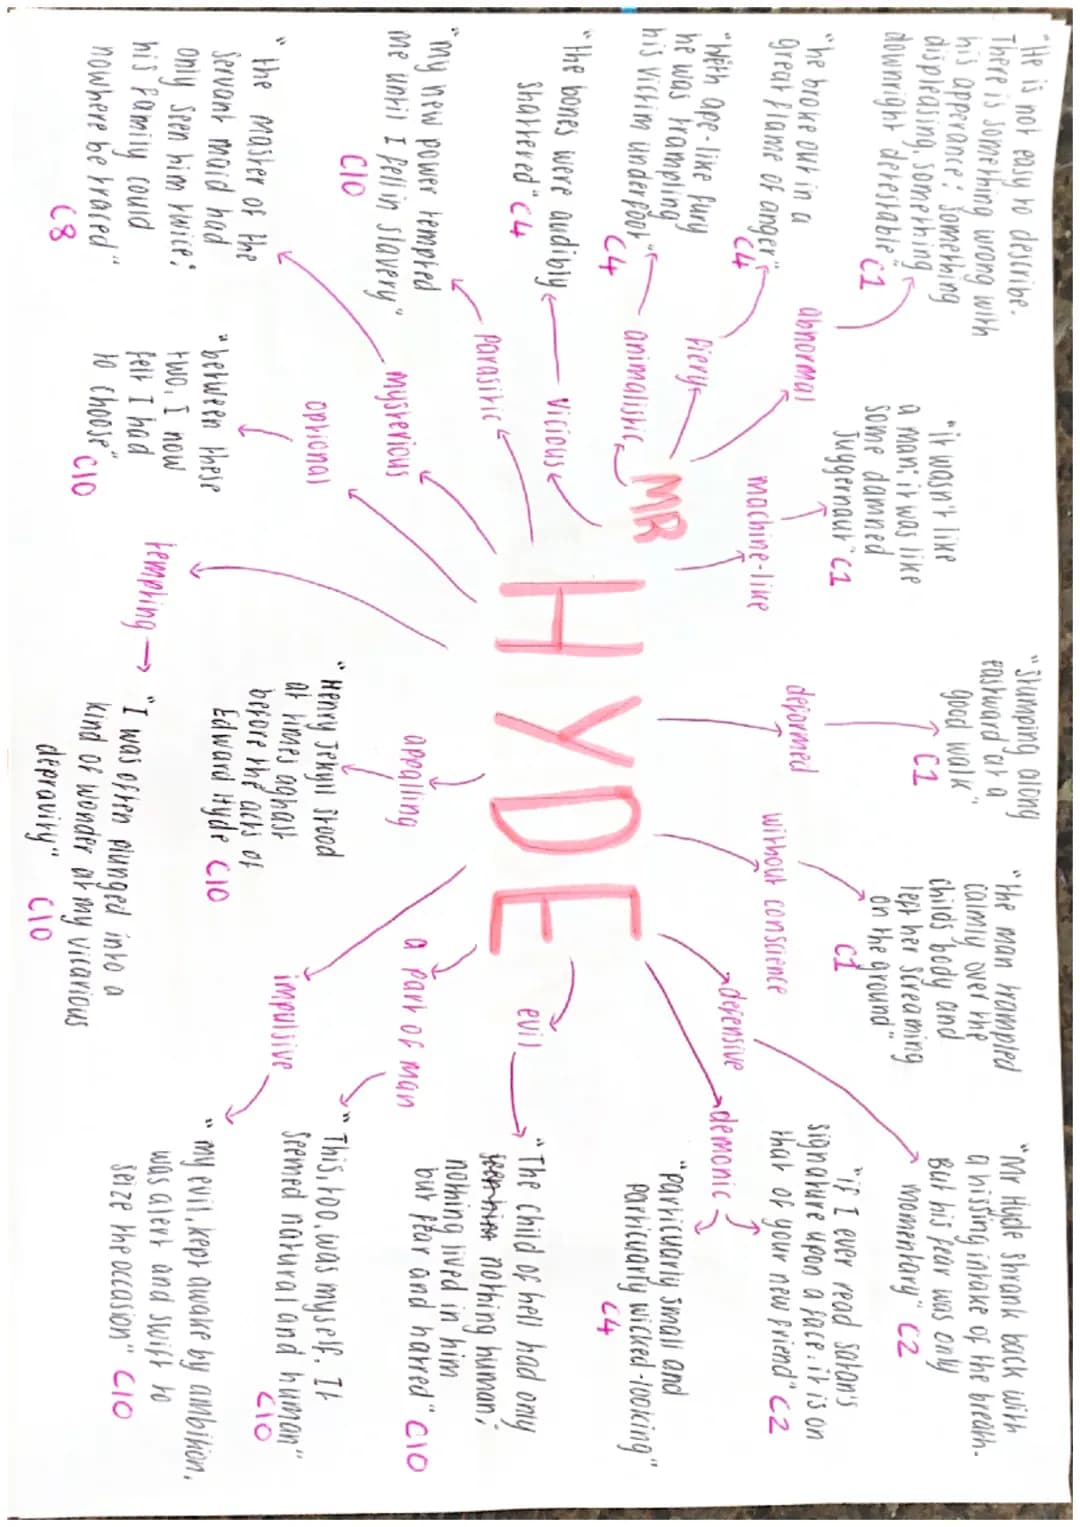 "He is not easy to describe.
There is something wrong with
his apperance; something
displeasing, something
downright detestable."
C1
abnormal
"he broke out in a
great flame of anger"
C4
fiery
"With ape-like fury
he was trampling
his victim underfoot"
C4
animalistic
"the bones were audibly
shattered" C4
vicious
"my new power tempted
me until I fell in slavery"
C10
parasitic
"the master of the
servant maid had
only seen him twice;
his family could
nowhere be traced"
C8
mysterious
"between these
two, I now
felt I had
to choose"
C10
optional
MR
HYDE
"it wasn't like
a man; it was like
some damned
Juggernaut" C1
machine-like
"Stumping along
eastward at a
good walk"
C1
deformed
"the man trampled
calmly over the
childs body and
left her screaming
on the ground"
C1
without conscience
"Mr Hyde shrank back with
a hissing intake of the breath.
But his fear was only
momentary" C2
defensive
"if I ever read satan's
signature upon a face, it is on
that of your new friend" C2
demonic
"particuarly small and
particuarly wicked-looking"
C4
evil
"The child of hell had only
nothing human;
nothing lived in him
but fear and hatred" C10
a part of man
"This, too, was myself. It
seemed natural and human"
C10
impulsive
"my evil, kept awake by ambition,
was alert and swift to
seize the occasion" C10
appalling
"Henry Jekyll stood
at times aghast
before the acts of
Edward Hyde C10
tempting
"I was often plunged into a
kind of wonder at my vicarious
depravity"
C10